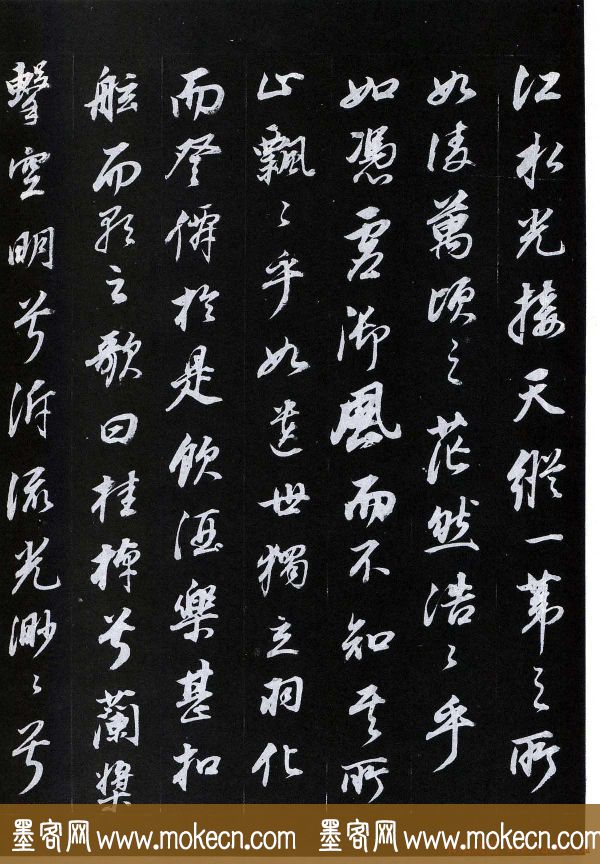 江水光接天縱一葦之所
如凌萬頃之茫然浩〻乎
如憑虛御風而不知其所
止飄〻乎如遺世獨立羽化
而登僊於是飲酒樂甚扣
舷而歌之歌曰桂棹兮蘭槳
擊空明兮泝流光渺〻兮
墨客网www.mokecn.com 墨客网www.mokecn.com